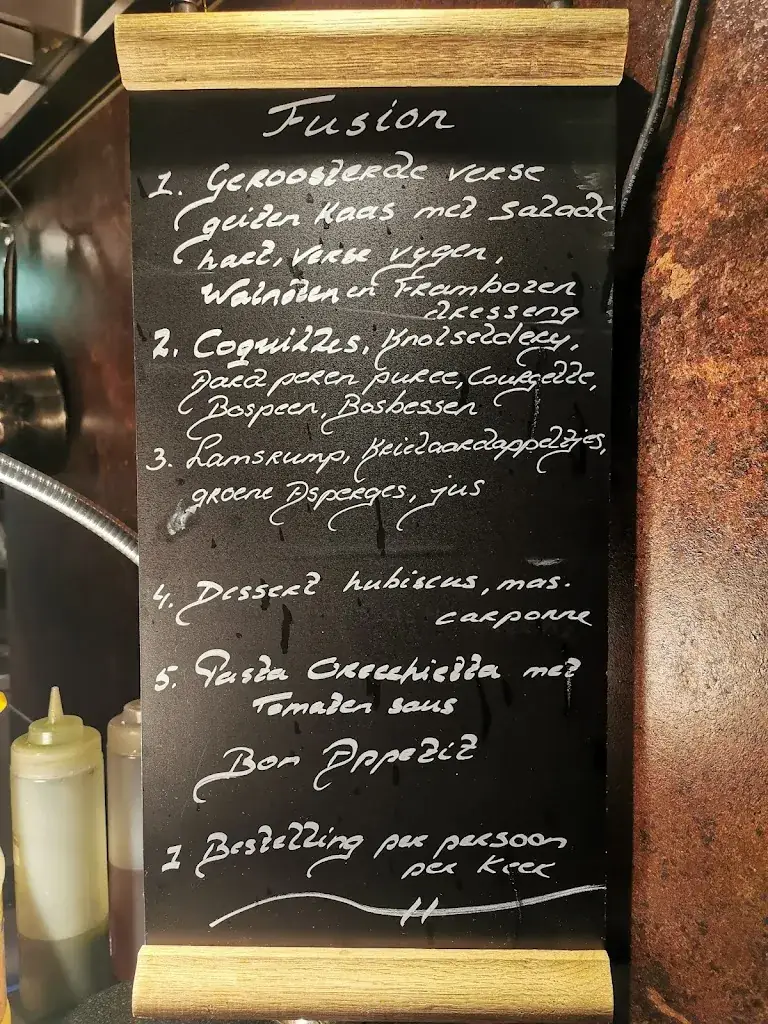 Fusion
1. Geroosterde verse
geiten kaas met salade
hart, verse vygen,
Walnoten en Frambozen
dresseng
2. Coquilles, Knolseldery,
Aard peren puree, Courgette,
Bospeen, Bosbessen
3. Lamsrump, Krielaardappeltjes,
groene Asperges, jus
4. Dessert hubiscus, mas.
carponne
5. Pasta Orecchietta met
Tomaten saus
Bon Appetit
1 Bestelling per persoon
per keer